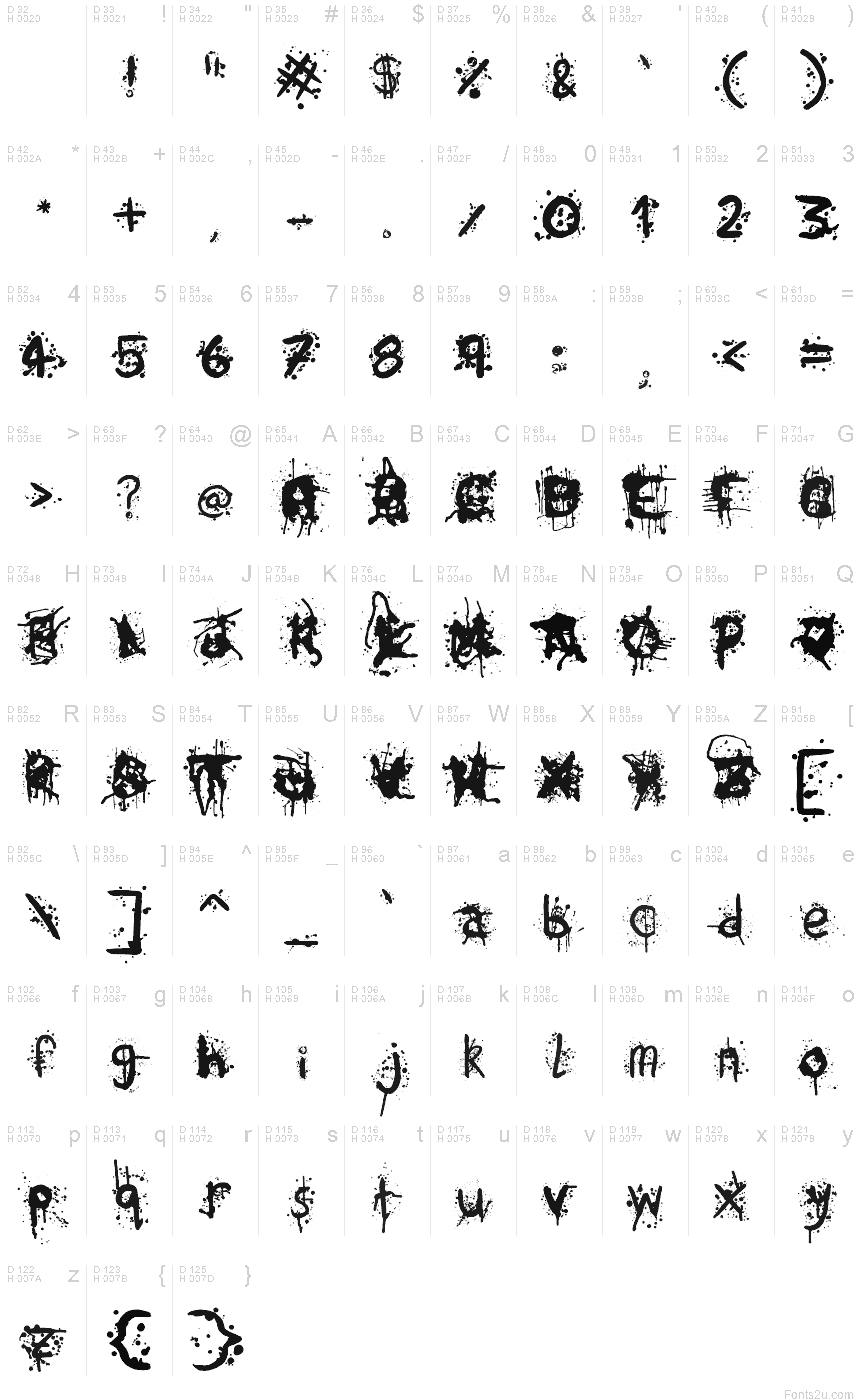 D 32 D 33 ! D 34 " D 35 # D 36 $ D 37 % D 38 & D 39 ' D 40 ( D 41 )
H 0020 H 0021 H 0022 H 0023 H 0024 H 0025 H 0026 H 0027 H 0028 H 0029
! " # $ % & ' ( )
D 42 * D 43 + D 44 , D 45 - D 46 . D 47 / D 48 0 D 49 1 D 50 2 D 51 3
H 002A H 002B H 002C H 002D H 002E H 002F H 0030 H 0031 H 0032 H 0033
* + , - . / 0 1 2 3
D 52 4 D 53 5 D 54 6 D 55 7 D 56 8 D 57 9 D 58 : D 59 ; D 60 < D 61 =
H 0034 H 0035 H 0036 H 0037 H 0038 H 0039 H 003A H 003B H 003C H 003D
4 5 6 7 8 9 : ; < =
D 62 > D 63 ? D 64 @ D 65 A D 66 B D 67 C D 68 D D 69 E D 70 F D 71 G
H 003E H 003F H 0040 H 0041 H 0042 H 0043 H 0044 H 0045 H 0046 H 0047
> ? @ A B C D E F G
D 72 H D 73 I D 74 J D 75 K D 76 L D 77 M D 78 N D 79 O D 80 P D 81 Q
H 0048 H 0049 H 004A H 004B H 004C H 004D H 004E H 004F H 0050 H 0051
H I J K L M N O P Q
D 82 R D 83 S D 84 T D 85 U D 86 V D 87 W D 88 X D 89 Y D 90 Z D 91 [
H 0052 H 0053 H 0054 H 0055 H 0056 H 0057 H 0058 H 0059 H 005A H 005B
R S T U V W X Y Z [
D 92 \ D 93 ] D 94 ^ D 95 _ D 96 ` D 97 a D 98 b D 99 c D 100 d D 101 e
H 005C H 005D H 005E H 005F H 0060 H 0061 H 0062 H 0063 H 0064 H 0065
\ ] ^ _ ` a b c d e
D 102 f D 103 g D 104 h D 105 i D 106 j D 107 k D 108 l D 109 m D 110 n D 111 o
H 0066 H 0067 H 0068 H 0069 H 006A H 006B H 006C H 006D H 006E H 006F
f g h i j k l m n o
D 112 p D 113 q D 114 r D 115 s D 116 t D 117 u D 118 v D 119 w D 120 x D 121 y
H 0070 H 0071 H 0072 H 0073 H 0074 H 0075 H 0076 H 0077 H 0078 H 0079
p q r s t u v w x y
D 122 z D 123 { D 125 }
H 007A H 007B H 007D
z { }
Fonts2u.com